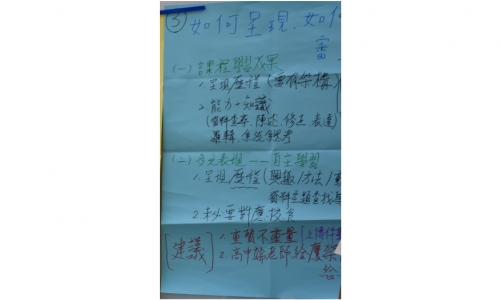 ③ 如何呈現、如何
審
(一) 課程學習成果
1. 呈現歷程 (要有架構)
2. 能力+知識
(資料查存、陳述、修正、表達)
邏輯、系統思考
(二) 多元表現——自主學習
1. 呈現歷程 (興趣/方法/
資料主題查找與
2. 不必要對應校系
[建議] 1. 重質不重量
2. 高中端老師給
給